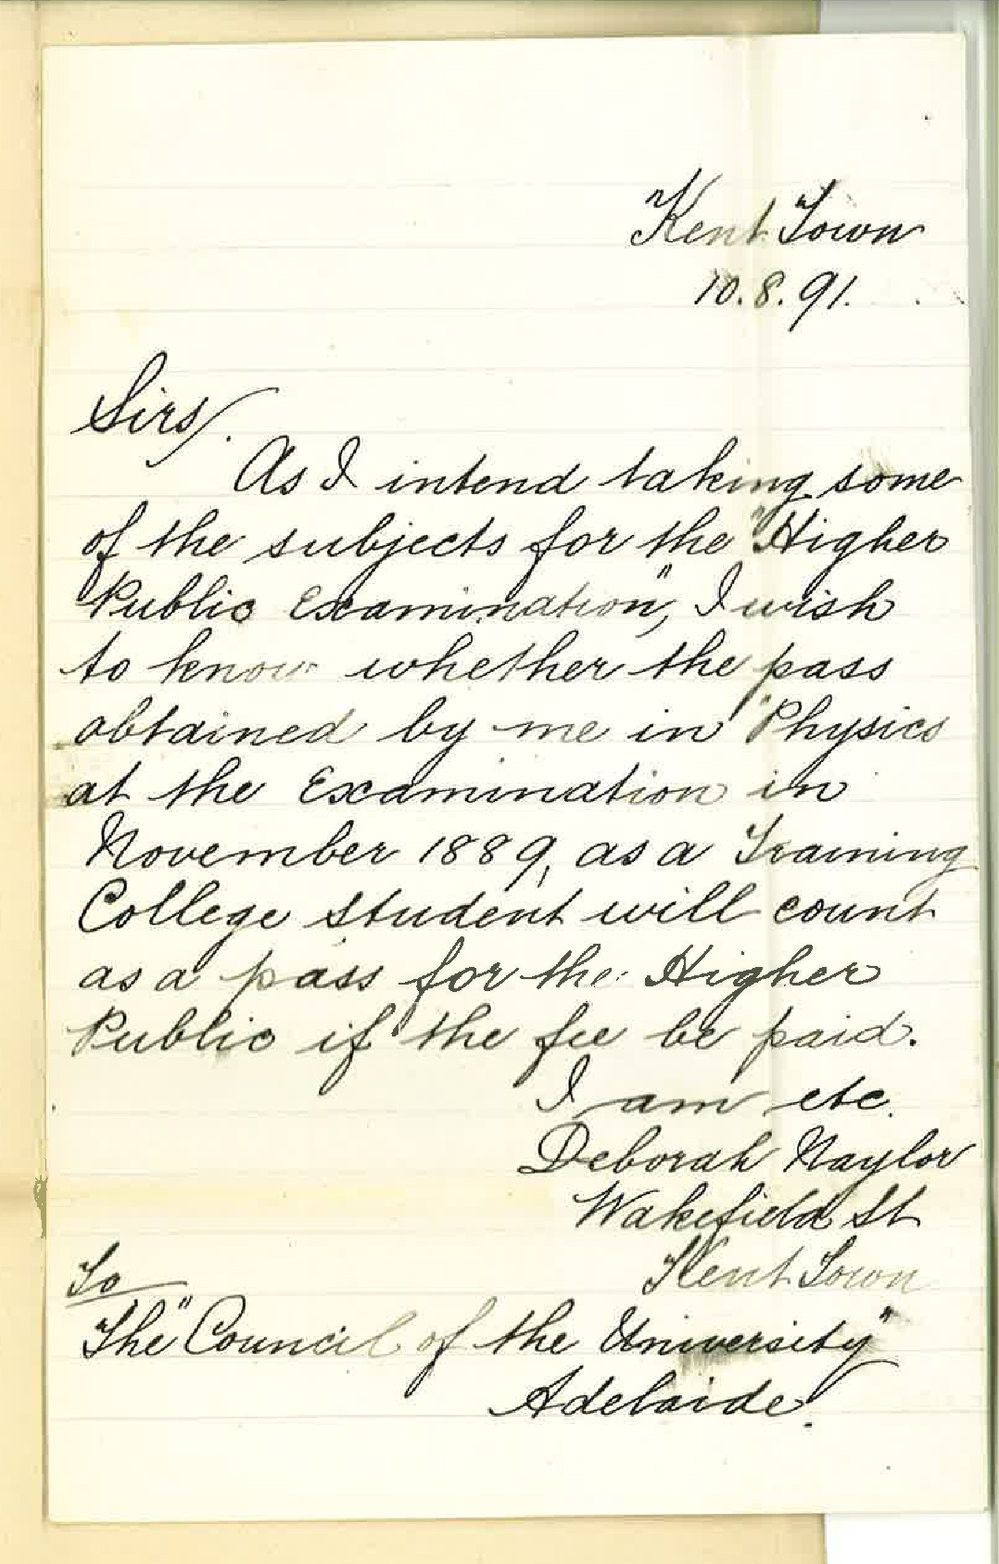 Kent Town
10.8.91.
Sirs,
As I intend taking some
of the subjects for the "Higher
Public Examination", I wish
to know whether the pass
obtained by me in Physics
at the Examination in
November 1889, as a Training
College student will count
as a pass for the Higher
Public if the fee be paid.
I am etc.
Deborah Naylor
Wakefield St
Kent Town
To
The "Council of the University"
Adelaide.